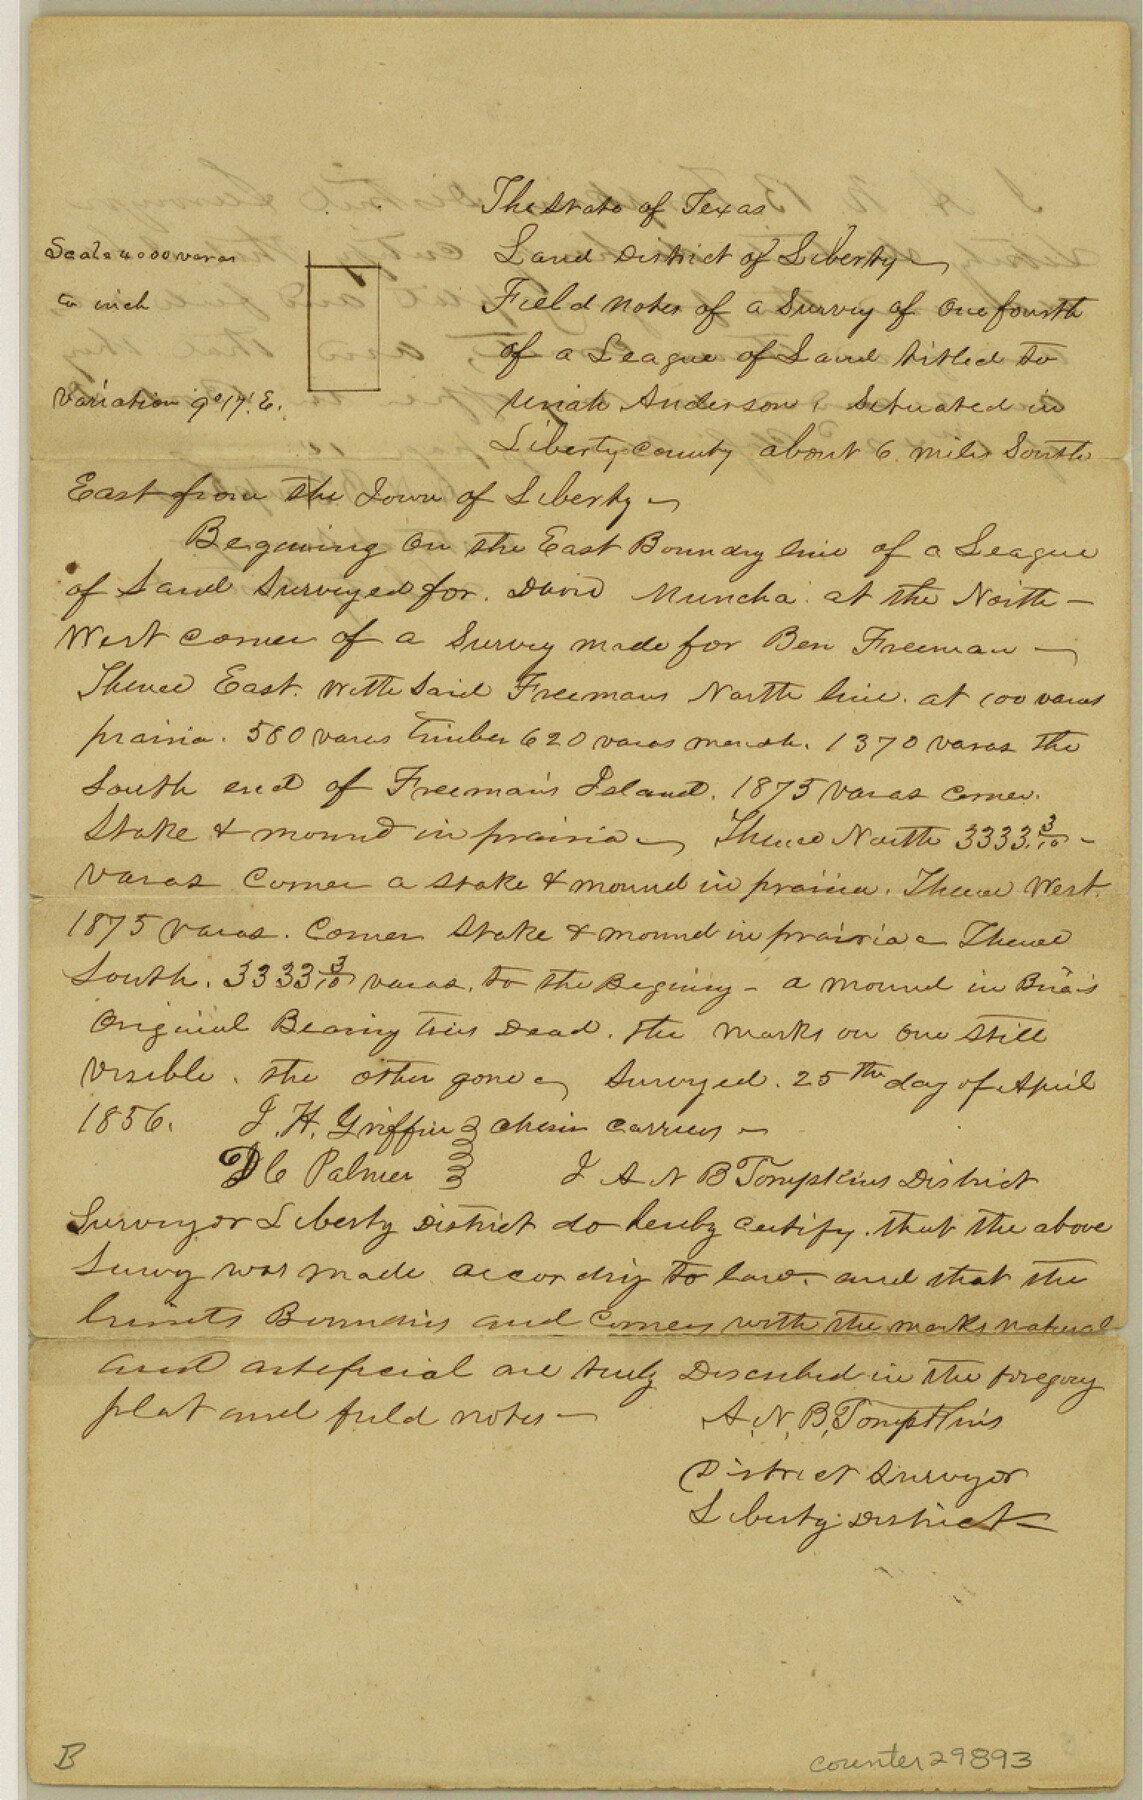 The State of Texas
Scale 4000 varas
to inch
Variation 9°17'. E.
Land District of Liberty
Field notes of a Survey of One fourth
of a League of Land titled to
Uriah Anderson, Situated in
Liberty County about 6 miles South
East from the Town of Liberty
Begining On the East Boundry line of a League
of Land Surveyed for. David Muncha. at the North-
West corner of a Survey made for Ben Freeman
Thence East. with Said Freemans North line. at 100 varas
prairia. 580 varas timber 620 varas marsh. 1370 varas the
South end of Freeman's Island. 1875 varas corner.
Stake & mound in prairia Thence North 3333 3/10 -
varas Corner a stake & mound in prairia. Thence West.
1875 varas. Corner Stake & mound in prairia Thence
South. 3333 3/10 varas. to the Begining - a mound in
Original Bearing trees Dead. the marks on One still
visible. the other gone Surveyed. 25th day of April
1856. J. H. Griffin } chain carriers
D C Palmer } I A N B Tompkins District
Surveyor Liberty District do hereby certify. that the above
Survey was made according to law. and that the
limits Boundries and Corners with the marks natural
and arteficial are truly Described in the foregoing
plat and field notes
A. N. B. Tompkins
District Surveyor
Liberty District
B
counter 29893